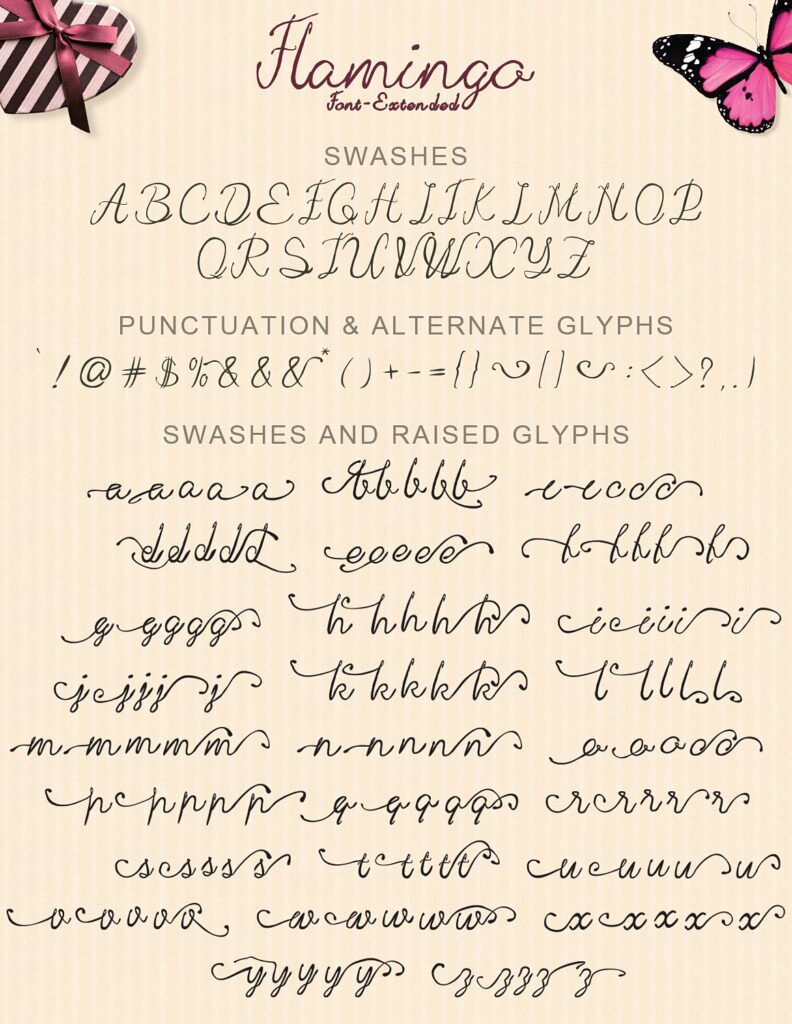 Flamingo
Font-Extended
SWASHES
ABCDEFGHIJKLMNOP
QRSTUVWXYZ
PUNCTUATION & ALTERNATE GLYPHS
` ! @ # $ % & & & * ( ) + - = { } ~ [ ] ~ : < > ? , . )
SWASHES AND RAISED GLYPHS
a a a a a b b b b b c c c c c
d d d d d e e e e e f f f f f
g g g g g h h h h h i i i i i
j j j j j k k k k k l l l l l
m m m m m n n n n n o o o o o
p p p p p q q q q q r r r r r
s s s s s t t t t t u u u u u
v v v v v w w w w w x x x x x
y y y y y z z z z z